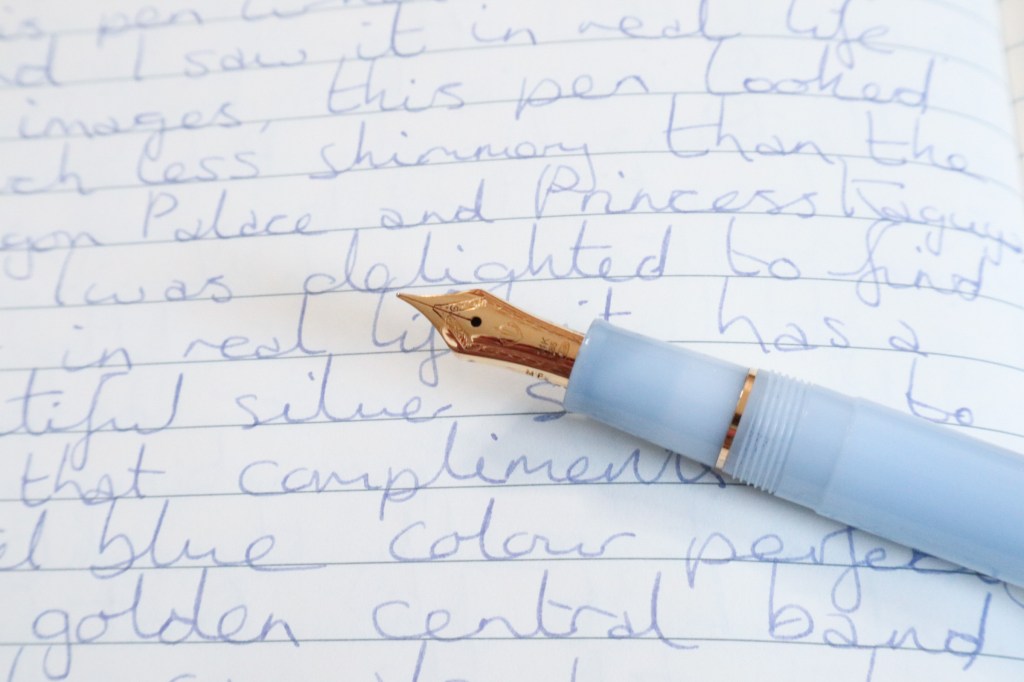 pen
I saw it in real life
images, this pen looked
less shimmery than the
Palace and Princess Kaguya
I was delighted to find
in real it has a
silver to
that compliment
blue colour
golden central band